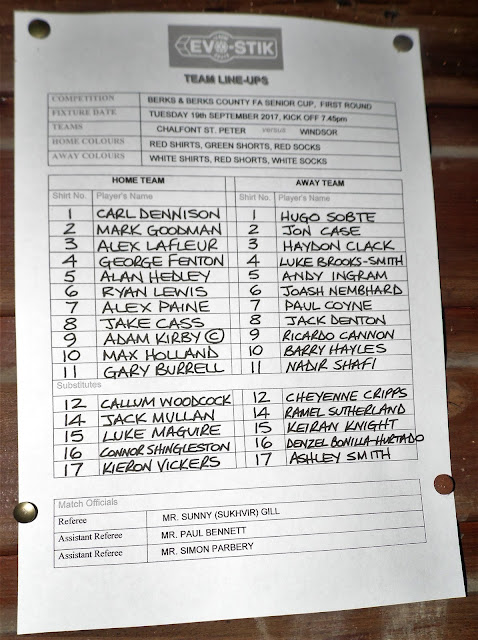 EVO-STIK
TEAM LINE-UPS
COMPETITION BERKS & BERKS COUNTY FA SENIOR CUP, FIRST ROUND
FIXTURE DATE TUESDAY 19th SEPTEMBER 2017, KICK OFF 7.45pm
TEAMS CHALFONT ST. PETER versus WINDSOR
HOME COLOURS RED SHIRTS, GREEN SHORTS, RED SOCKS
AWAY COLOURS WHITE SHIRTS, RED SHORTS, WHITE SOCKS
HOME TEAM AWAY TEAM
Shirt No. Player's Name Shirt No. Player's Name
1 CARL DENNISON 1 HUGO SOBTE
2 MARK GOODMAN 2 JON CASE
3 ALEX LAFLEUR 3 HAYDON CLACK
4 GEORGE FENTON 4 LUKE BROOKS-SMITH
5 ALAN HEDLEY 5 ANDY INGRAM
6 RYAN LEWIS 6 JOASH NEMBHARD
7 ALEX PAINE 7 PAUL COYNE
8 JAKE CASS 8 JACK DENTON
9 ADAM KIRBY © 9 RICARDO CANNON
10 MAX HOLLAND 10 BARRY HAYLES
11 GARY BURRELL 11 NADIR SHAFI
Substitutes
12 CALLUM WOODCOCK 12 CHEYENNE CRIPPS
14 JACK MULLAN 14 RAMEL SUTHERLAND
15 LUKE MAGUIRE 15 KEIRAN KNIGHT
16 CONNOR SHINGLESTON 16 DENZEL BONILLA-HURTADO
17 KIERON VICKERS 17 ASHLEY SMITH
Match Officials
Referee MR. SUNNY (SUKHVIR) GILL
Assistant Referee MR. PAUL BENNETT
Assistant Referee MR. SIMON PARBERY